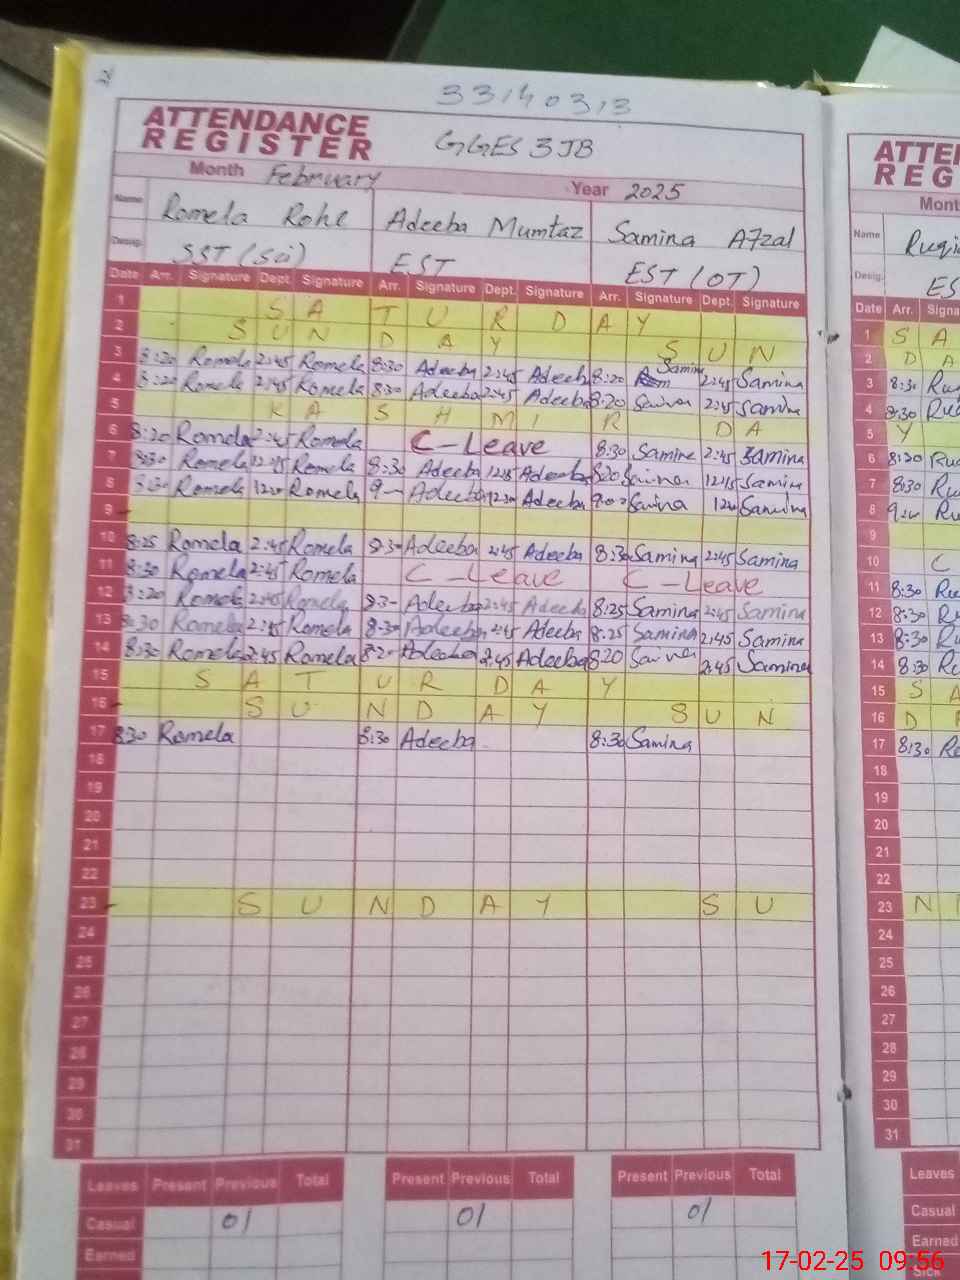 33140313
ATTENDANCE
REGISTER
GGES 3JB
Month February Year 2025
Name Romela Rohe Adeeba Mumtaz Samina Afzal
Desig. SST (Sci) EST EST (OT)
Date Arr. Signature Dept. Signature Arr. Signature Dept. Signature Arr. Signature Dept. Signature
1 S A T U R D A Y
2 S U N D A Y S U N
3 8:20 Romela 2:45 Romela 8:30 Adeeba 2:45 Adeeba 8:20 Samina 2:45 Samina
4 8:20 Romela 2:45 Romela 8:30 Adeeba 2:45 Adeeba 8:20 Samina 2:45 Samina
5 K A S H M I R D A
6 8:20 Romela 2:45 Romela C-Leave 8:30 Samina 2:45 Samina
7 8:30 Romela 12:15 Romela 8:30 Adeeba 12:15 Adeeba 8:20 Samina 12:15 Samina
8 Romela Romela 9- Adeeba Adeeba 9:00 Samina Samina
9
10 8:25 Romela 2:45 Romela 8:30 Adeeba 2:45 Adeeba 8:30 Samina 2:45 Samina
11 8:30 Romela 2:45 Romela C-Leave C-Leave
12 8:20 Romela 2:45 Romela 8:3- Adeeba 2:45 Adeeba 8:25 Samina 2:45 Samina
13 8:30 Romela 2:45 Romela 8:30 Adeeba 2:45 Adeeba 8:25 Samina 2:45 Samina
14 8:30 Romela 2:45 Romela 8:2- Adeeba 2:45 Adeeba 8:20 Samina 2:45 Samina
15 S A T U R D A Y
16 S U N D A Y S U N
17 8:30 Romela 8:30 Adeeba 8:30 Samina
18
19
20
21
22
23 S U N D A Y S U
24
25
26
27
28
29
30
31
Leaves Present Previous Total Present Previous Total Present Previous Total
Casual 01 01 01
Earned
ATTE
REG
Mont
Name
Desig. ES
Date Arr. Signa
1 S A
2 D A
3 8:30
4 8:30
5 Y
6 8:20
7 8:30
8
9
10 C
11 8:30
12 8:30
13 8:30
14 8:30
15 S A
16 D
17 8:30
18
19
20
21
22
23 N
24
25
26
27
28
29
30
31
Leaves
Casual
Earned
Sick
17-02-25 09:56